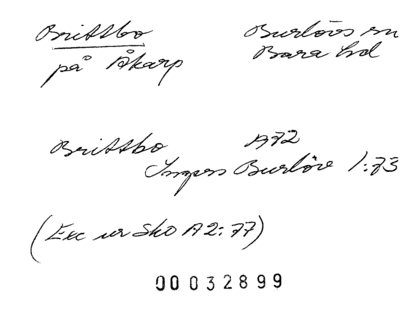 Brittbo Burlövs sn
på Åkarp Bara hd
Brittbo A72
Ingers Burlöv 1:73
(Exc ur Sko A2:77)
00032899